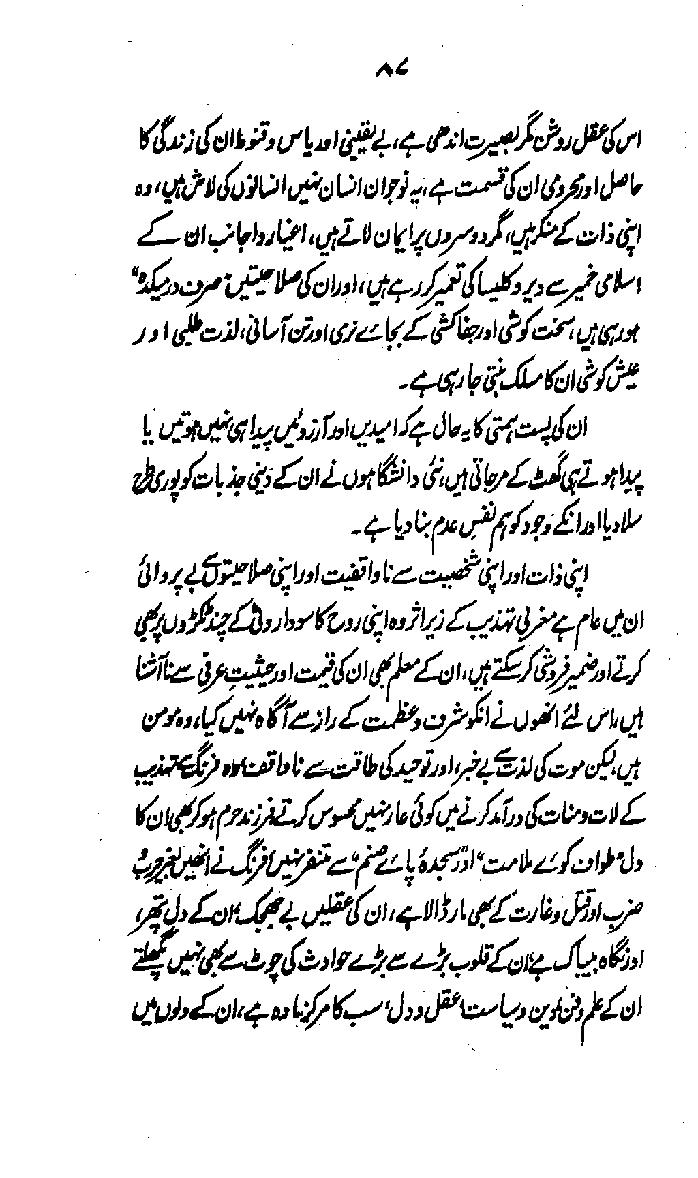 ۸۷
اس کی عقل روشن مگر بصیرت اندھی ہے، بے یقینی اور یاس و قنوط ان کی زندگی کا
حاصل اور محرومی ان کی قسمت ہے، یہ نوجوان انسان نہیں انسانوں کی لاش ہیں، وہ
اپنی ذات کے منکر ہیں، مگر دوسروں پر ایمان لاتے ہیں، اغیار و اجانب ان کے
اسلامی خمیر سے دیر و کلیسا کی تعمیر کر رہے ہیں، اور ان کی صلاحیتیں "صرف در میکدہ"
ہو رہی ہیں، سخت کوشی اور جفاکشی کے بجائے نرمی اور تن آسانی، لذت طلبی اور
عیش کوشی ان کا مسلک بنتی جا رہی ہے۔
ان کی پست ہمتی کا یہ حال ہے کہ امیدیں اور آرزوئیں پیدا ہی نہیں ہوتیں یا
پیدا ہوتے ہی گھٹ کے مرجاتی ہیں، نئی دانشگاہوں نے ان کے دینی جذبات کو پوری طرح
سلا دیا اور انکے وجود کو ہم نفسِ عدم بنا دیا ہے۔
اپنی ذات اور اپنی شخصیت سے ناواقفیت اور اپنی صلاحیتوں سے بے پروائی
ان میں عام ہے مغربی تہذیب کے زیر اثر وہ اپنی روح کا سودا روٹی کے چند ٹکڑوں پر بھی
کرتے اور ضمیر فروشی کر سکتے ہیں، ان کے معلم بھی ان کی قیمت اور حیثیتِ عرفی سے نا آشنا
ہیں، اس لئے انھوں نے انکو شرف و عظمت کے راز سے آگاہ نہیں کیا، وہ مومن
ہیں، لیکن موت کی لذت سے بے خبر، اور توحید کی طاقت سے ناواقف، وہ فرنگ سے تہذیب
کے لات و منات کی درآمد کرنے میں کوئی عار نہیں محسوس کرتے فرزندِ حرم ہو کر بھی ان کا
دل "طوافِ کوئے ملامت" اور "سجدۂ پائے صنم" سے متنفر نہیں افرنگ نے انھیں بغیر حرب و
ضرب اور قتل و غارت کے بھی مار ڈالا ہے، ان کی عقلیں بے جھجک، ان کے دل پتھر،
اور نگاہ بیباک ہے، ان کے قلوب بڑے سے بڑے حوادث کی چوٹ سے بھی نہیں پگھلتے
ان کے علم و فن، دین و سیاست، عقل و دل، سب کا مرکز مادہ ہے، ان کے دلوں میں